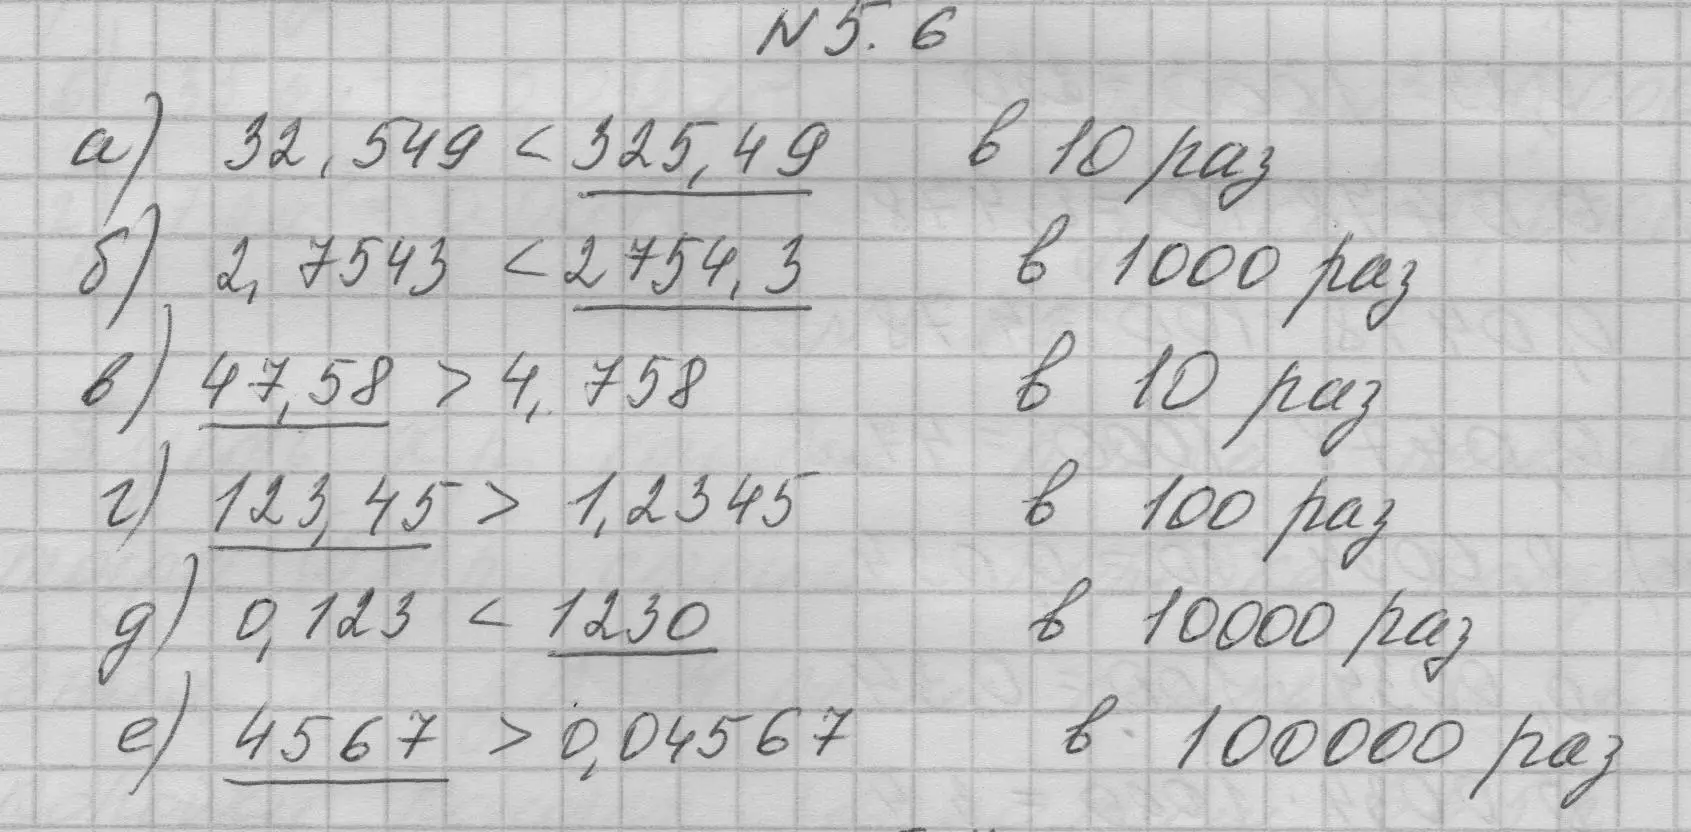 N 5. 6
а) 32,549 < 325,49 в 10 раз
б) 2,7543 < 2754,3 в 1000 раз
в) 47,58 > 4,758 в 10 раз
г) 123,45 > 1,2345 в 100 раз
д) 0,123 < 1230 в 10000 раз
е) 4567 > 0,04567 в 100000 раз